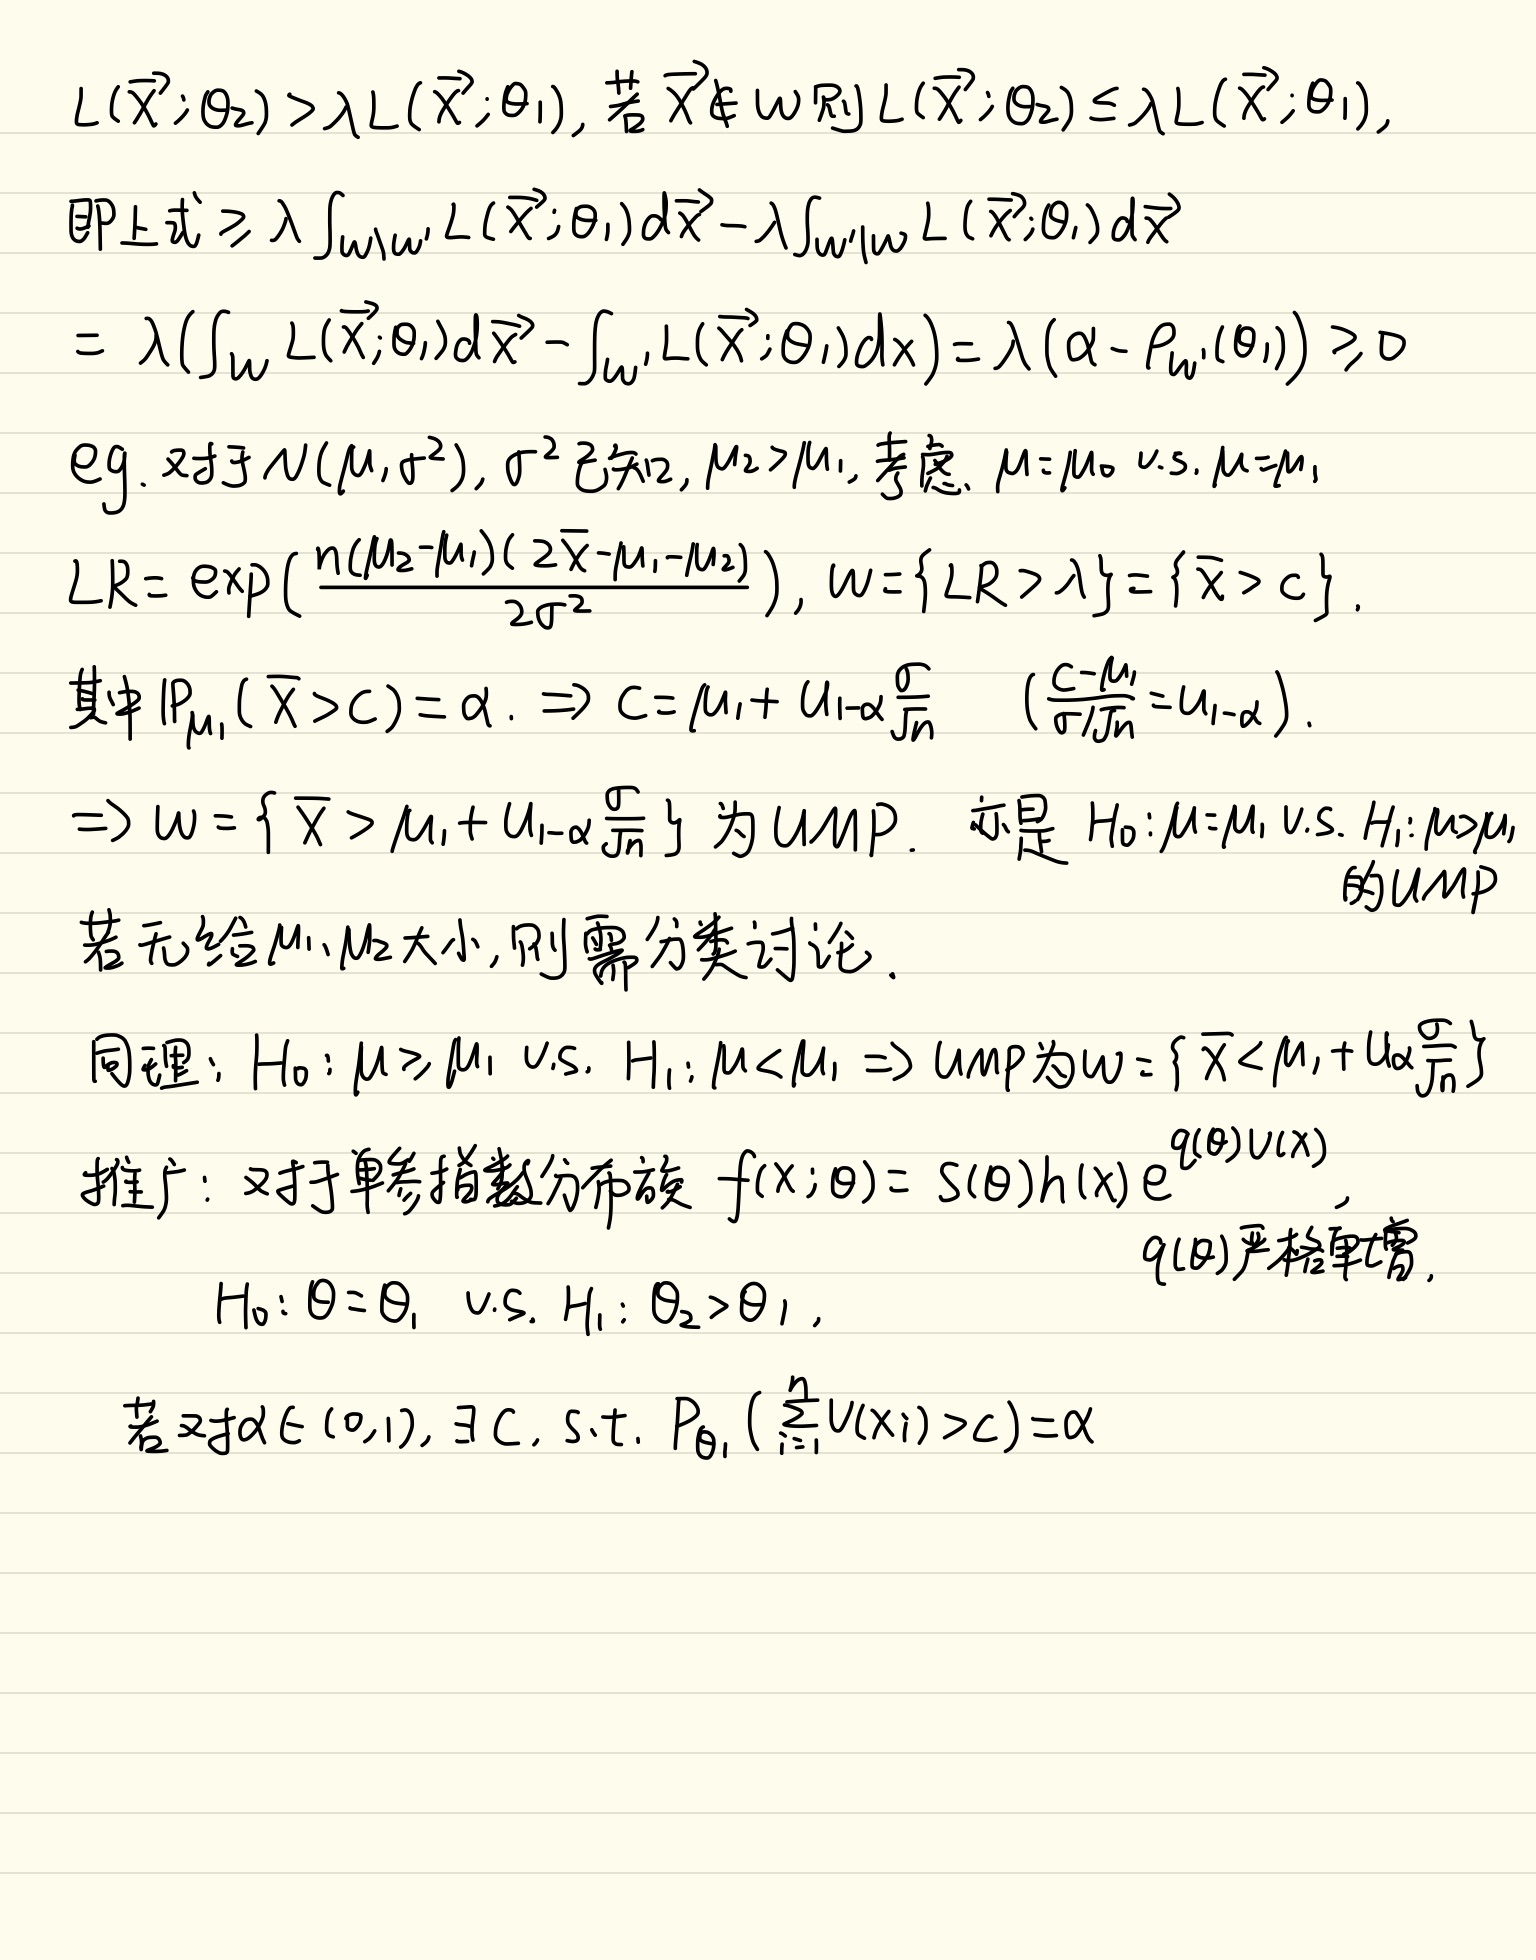 L(x⃗;θ₂)>λL(x⃗;θ₁), 若 x⃗∉W则L(x⃗;θ₂)≤λL(x⃗;θ₁),
即上式≥λ∫_{W\W'} L(x⃗;θ₁)dx⃗-λ∫_{W'\W} L(x⃗;θ₁)dx⃗
= λ(∫_W L(x⃗;θ₁)dx⃗-∫_{W'} L(x⃗;θ₁)dx)=λ(α-ρ_{W'}(θ₁))≥0
eg. 对于N(μ,σ²), σ²已知, μ₂>μ₁, 考虑. μ=μ₀ v.s. μ=μ₁
LR= exp(\frac{n(μ₂-μ₁)(2x̄-μ₁-μ₂)}{2σ²}), W={LR>λ}={x̄>c}.
其中ℙ_{μ₁}(x̄>c)=α. ⇒ c=μ₁+u_{1-α}\frac{σ}{√n} (\frac{c-μ₁}{σ/√n}=u_{1-α}).
⇒ W={x̄>μ₁+u_{1-α}\frac{σ}{√n}} 为UMP. 亦是 H₀:μ=μ₁ v.s. H₁:μ>μ₁
的UMP
若无给μ₁、μ₂大小,则需分类讨论.
同理: H₀:μ≥μ₁ v.s. H₁:μ<μ₁ ⇒ UMP为W={x̄<μ₁+u_α\frac{σ}{√n}}
推广: 对于单参指数分布族 f(x;θ)= S(θ)h(x)e^{q(θ)U(x)},
q(θ)严格单增.
H₀:θ=θ₁ v.s. H₁:θ₂>θ₁,
若对α∈(0,1), ∃C, s.t. P_{θ₁}(∑_{i=1}^{n}U(xi)>c)=α